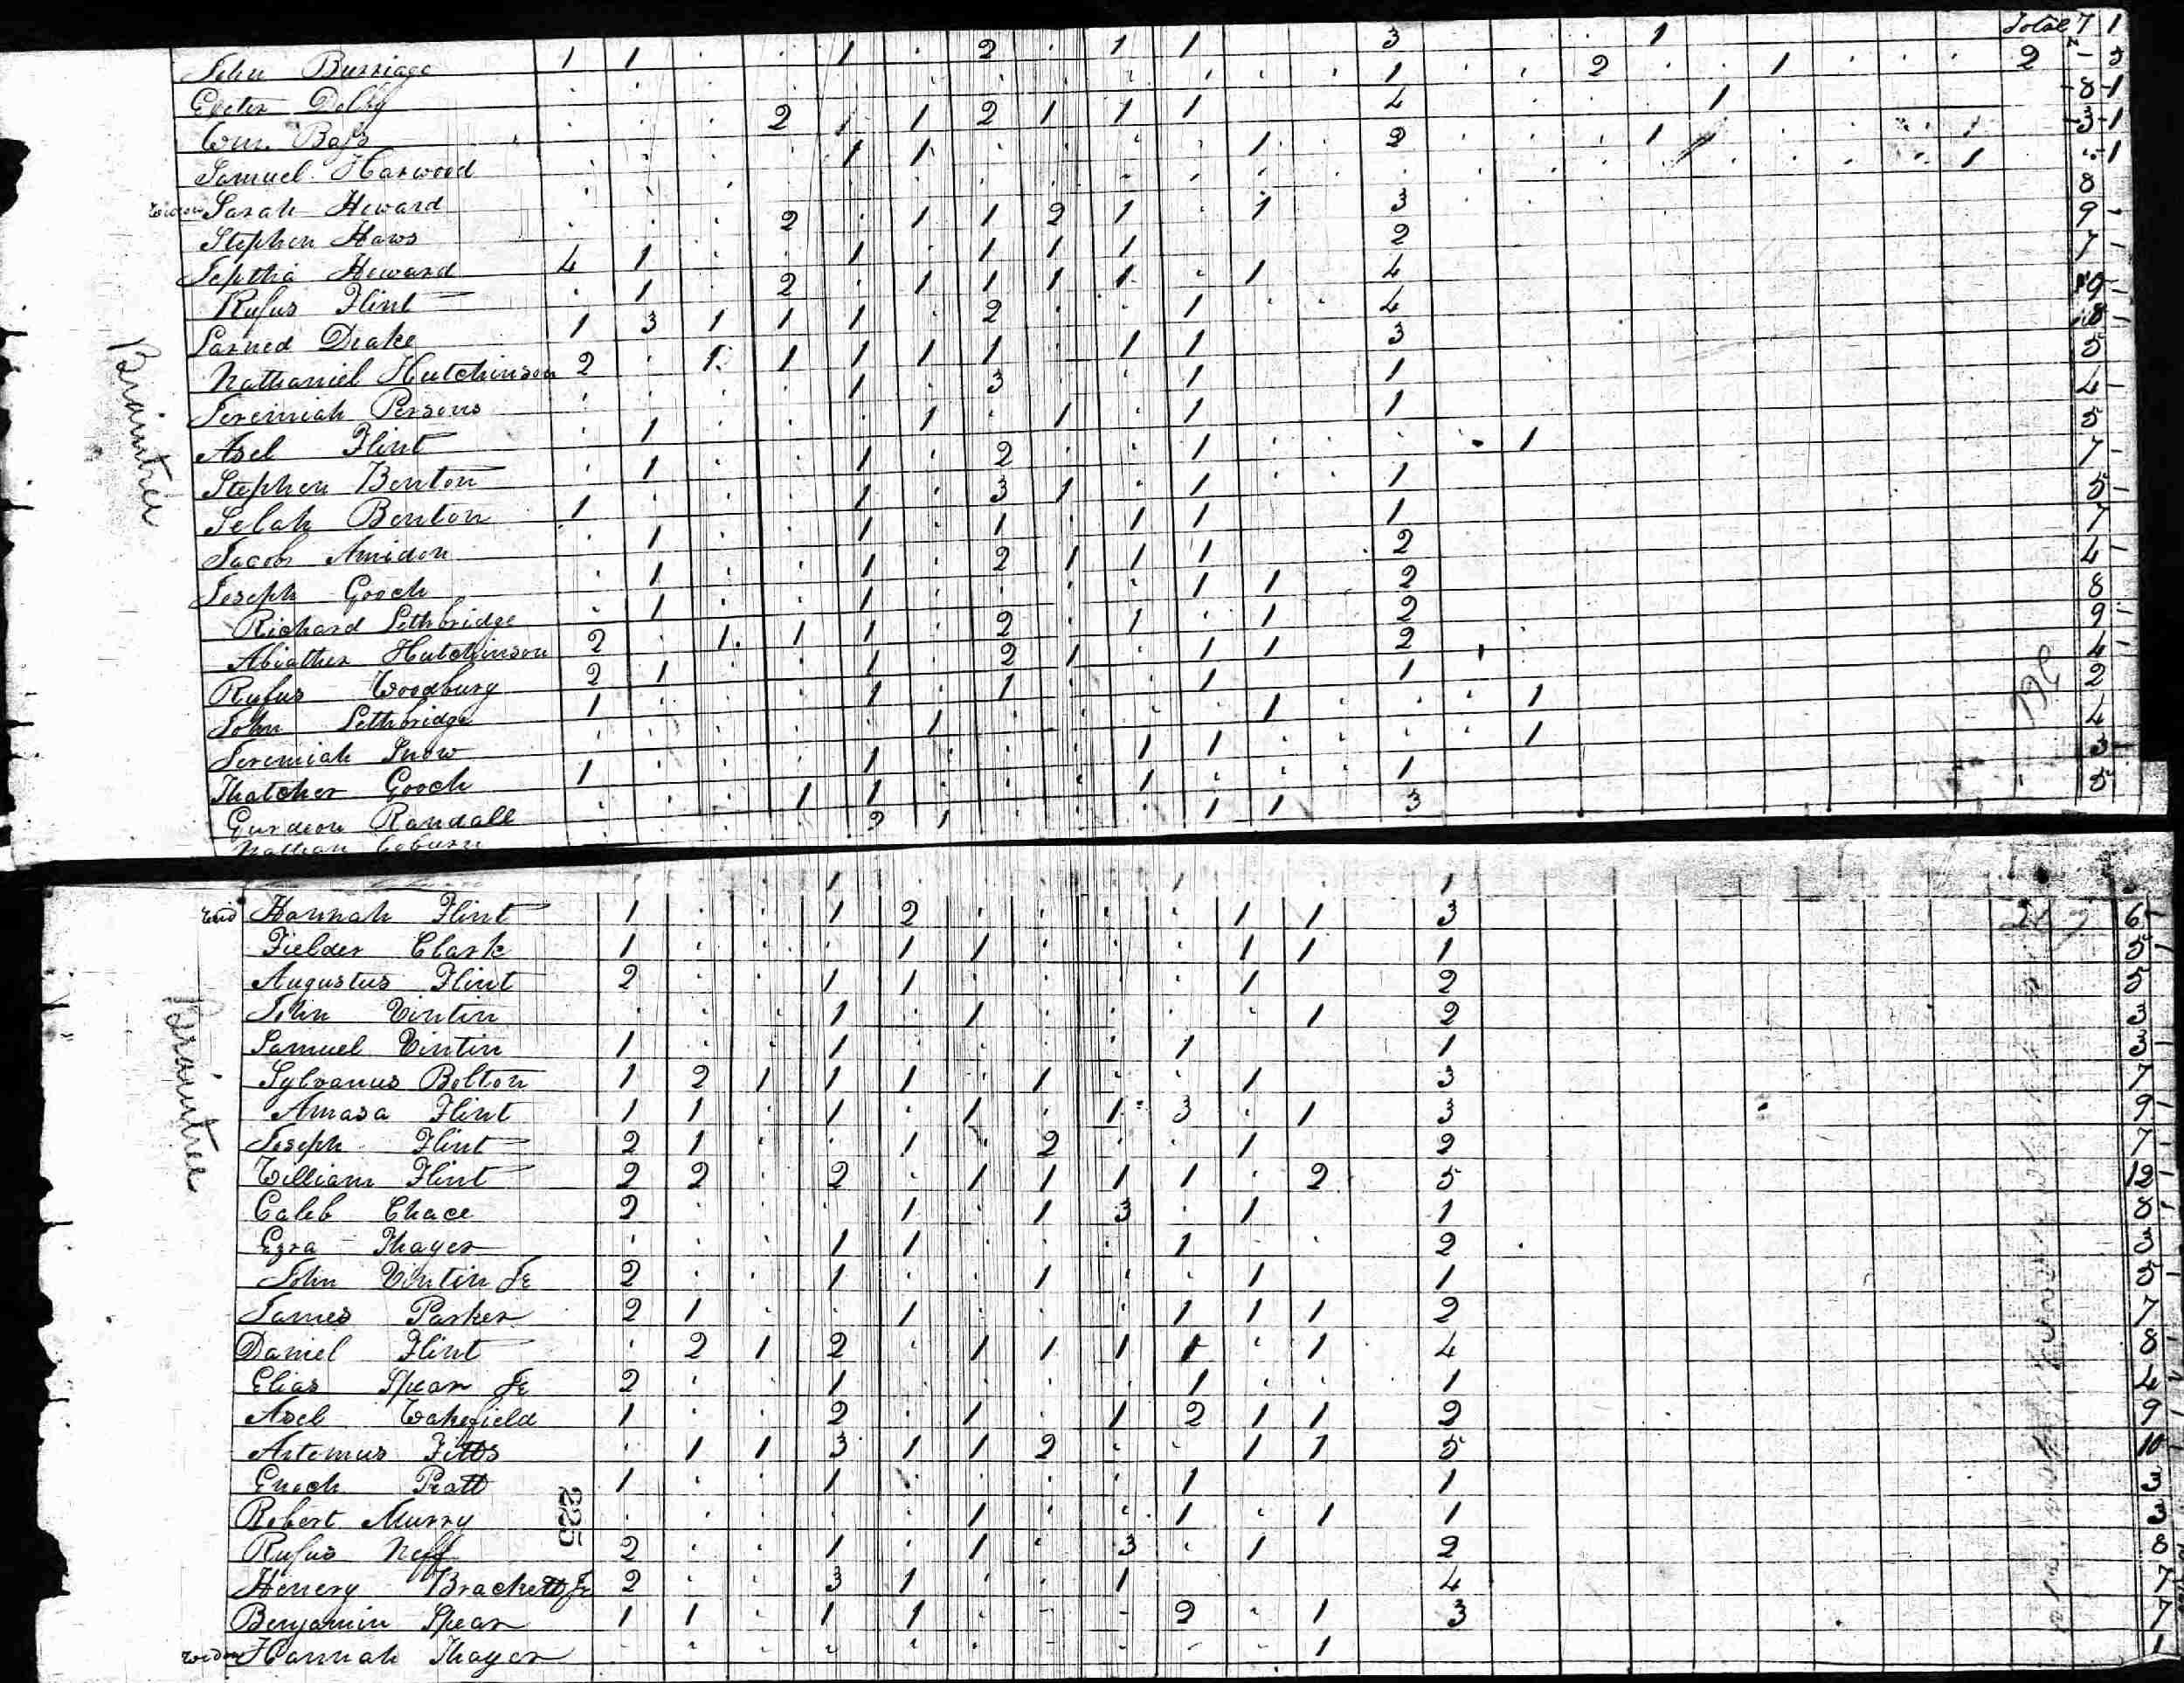 Total 7 1
John Burriage 1 1 . . . 1 . 2 . 1 1 3 1 2 - 3
Exeter Dolby . . . . . . . . . . . . 1 . . 2 . . 1 . . . 2
Wm. Bass . . . 2 1 1 2 1 1 1 4 1 8 1
Samuel Harwood . . . . 1 1 . . . . 1 2 1 3 1
Widow Sarah Howard 1 1
Stephen Haws . . . 2 . 1 1 2 1 . 1 3 8
Jeptha Howard 4 1 . . 1 . 1 1 1 2 9
Rufus Flint . 1 . 2 . 1 1 1 1 . 1 4 7
Larned Drake 1 3 1 1 1 . 2 . . 1 4
Nathaniel Hutchinson 2 . 1 1 1 1 1 . 1 1 3
Jeremiah Persons . . . . 1 . 3 . . 1 1 5
Asel Flint . 1 . . . 1 . 1 . 1 1 4
Stephen Benton . 1 . . 1 . 2 . . 1 . . . 1 5
Selah Benton 1 . . . 1 . 3 1 . 1 1 7
Jacob Amidon . 1 . . 1 . 1 . 1 1 1 5
Joseph Gooch . 1 . . 1 . 2 1 1 1 2 7
Richard Lethbridge . 1 . . 1 . . . . 1 1 2 4
Abiather Hutchinson 2 . 1 1 1 . 2 . 1 . 1 2 8
Rufus Woodbury 2 1 . . 1 . 2 1 . 1 1 2 9
John Lethbridge 1 . . . 1 . 1 . . 1 1 4
Jeremiah Snow . . . . . 1 . . . . 1 . . 1 2
Thatcher Gooch 1 . . . 1 . . . 1 1 . . . 1 4
Gurdeon Randall . . . 1 1 . . . 1 . . . 1 3
Nathan Coburn . . . . 2 1 . . . 1 1 3 5
Braintree
Wid Hannah Flint 1 . . 1 2 . . . . 1 1 3 6
Fielder Clark 1 . . . 1 1 . . . 1 1 1 5
Augustus Flint 2 . . 1 1 . . . . 1 2 5
John Vintin . . . 1 . 1 . . . . 1 2 3
Samuel Vintin 1 . . 1 . . . . 1 1 3
Sylvanus Bolton 1 2 1 1 1 . 1 . . 1 3 7
Amasa Flint 1 1 . 1 . 1 . 1 3 . 1 3 9
Joseph Flint 2 1 . . 1 . 2 . . 1 2 7
William Flint 2 2 . 2 . 1 1 1 1 . 2 5 12
Caleb Chace 2 . . . 1 . 1 3 . 1 1 8
Ezra Thayer . . . 1 1 . . . 1 . . 2 3
John Vintin Jr 2 . . 1 . . 1 . . 1 1 5
James Parker 2 1 . . 1 . . . 1 1 1 2 7
Daniel Flint . 2 1 2 . 1 1 1 1 . 1 4 8
Elias Spear Jr 2 . . 1 . . . . 1 . . 1 4
Asel Wakefield 1 . . 2 . 1 . 1 2 1 1 2 9
Artemus Fitts . 1 1 3 1 1 2 . . 1 1 5 10
Enoch Pratt 1 . . 1 . . . . 1 1 3
Robert Murry . . . . . 1 . . 1 . 1 1 3
Rufus Neff 2 . . 1 . 1 . 3 . 1 2 8
Henery Brackett Jr 2 . . 3 1 . . 1 4 7
Benjamin Spear 1 1 . 1 1 . - - 2 . 1 3 7
Widow Hannah Thayer . . . . . . . . . . 1 1
Braintree
225